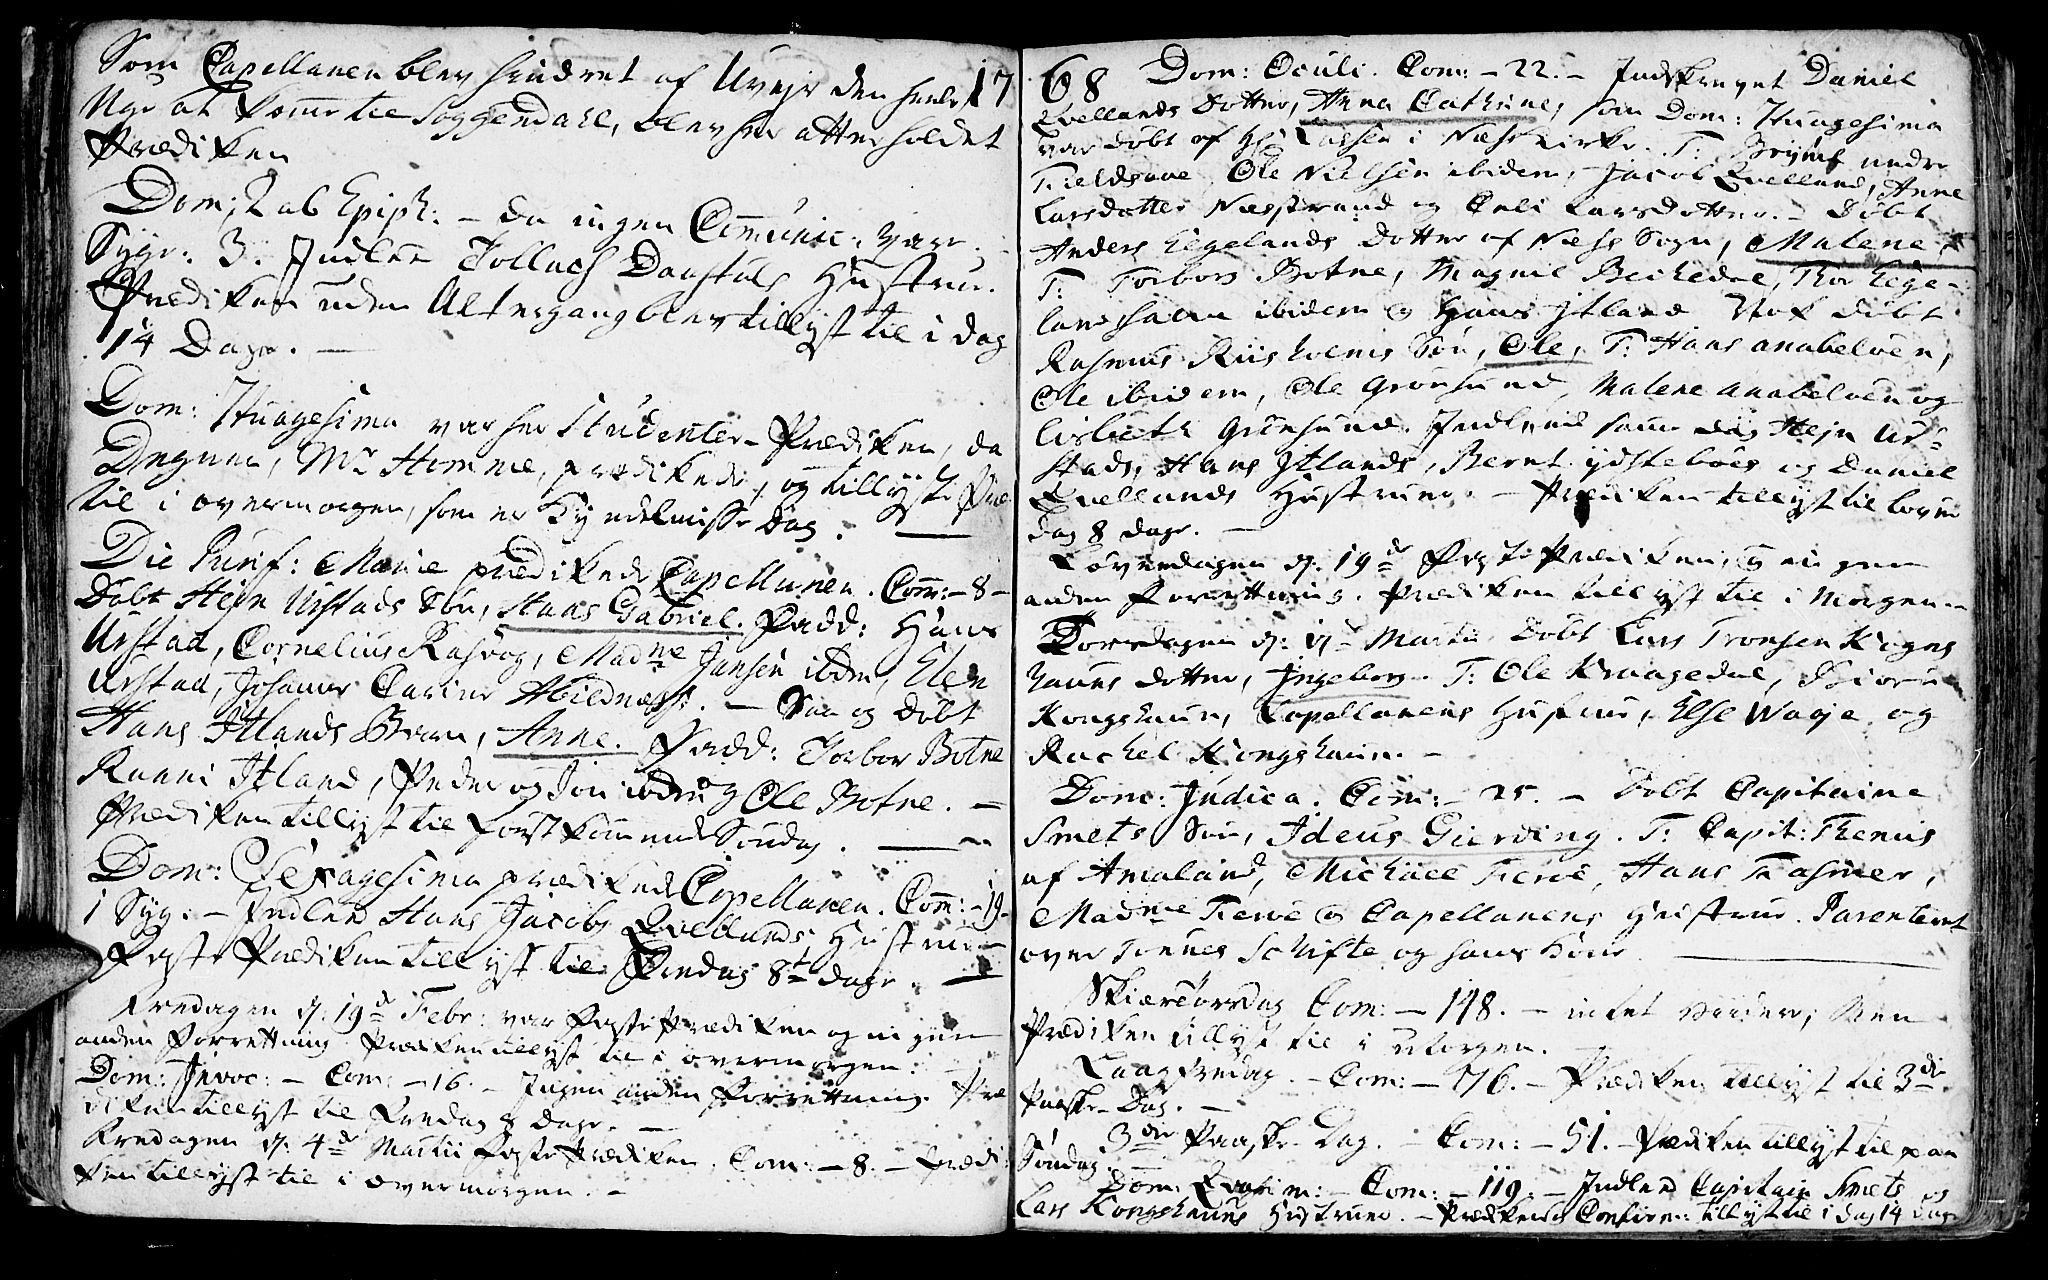 Som Capellanen blev hindret af Uvejr den heele 17
Uge at komme til Soggendahl, blev her atter holdet
Prædiken
Dom: 2 ab Epiph: – da ingen Comunic: vare.
Syge: 3. Indleed Tollachs Danstuls Hustrue.
Prædiken uden Altergang blev tillyst til i dag
14 Dage. –
Dom: Huagesima var her Studenter-Prædiken, da
Degnen, Mr Homme, prædikede, og tillyste Præ
til i overmorgen, som er Kyndelmisse Dag. –
Die Purif: Mariæ prædikede Capellanen. Com: – 8 –
Døbt Steen Urstads Søn, Hans Gabriel. Fadd: Hans
Urstad, Cornelius Rasvog, Madme Jansen ibdm, Elen
Urstad, Johanne Carine Abildnæss. – Saa og døbt
Hans Itlands Barn, Anne. Fadd: Torbor Botne
Ranni Itland, Peder og Jon ibdm og Ole Botne. –
Prædiken tillyst til førstkommende Søndag. –
Dom: Sexagesima prædikede Capellanen. Com: – 19 –
1 Syg: – Indleed Hans Jacobs Qvellands Hustrue –
Faste Prædiken tillyst til Fredag 8te dage. –
Fredagen d: 19de Febr: var Faste Prædiken og ingen
anden Forretning. Prædiken tillyst til i overmorgen.
Dom: Invoc: – Com: – 16. – Ingen anden Forretning. Præ
diken tillyst til Fredag 8 dage. –
Fredagen d: 4de Martii Faste Prædiken. Com: – 8. – Prædi
ken tillyst til i overmorgen. –
68 Dom: Oculi. Com: – 22. – Indskrevet Daniel
Qvellands Dotter, Anna Cathrine, som Dom: Huagesima
var døbt af Hr Lassen i Næss Kirke. T: under
Ole Nielsen ibidem, Jacob Qvelland, Anne
Larsdotter Næsstrand og Larsdotter. – Døbt
Anders Eegelands Dotter af Næss Sogn, Malene
T: Torbors Botne, Magnil Thor Eege-
land ibidem og Hans Itland Nok døbt
Rasmus Søn, Ole, T: Hans Anabeløen,
Ole ibidem, Ole Grønsund, Malene Anabeløen og
Lisbeth Grønsund. Indleed Steen Ur-
stads, Hans Itlands, Bernt Ydstebøes og Daniel
Qvellands Hustruer. – Prædiken tillyst til Løver
dag 8 dage. –
Løverdagen d: 19de Faste Prædiken, og ingen
anden Forretning. Prædiken tillyst til i Morgen. –
Torsdagen d: Martii Døbt Lars Tronsen Kogns
havns dotter, Ingeborg. T: Ole Kraagedal,
Kongshavn, Capellanens Hustrue, Else Waaje og
Rachel Kongshavn. –
Dom: Judica. Com: – 25. – Døbt Capitaine
Smets Søn, Ideus Gierding. T: Capit: Thenius
af Amaland, Michael Hans Trasmer,
Madme og Capellanens Hustrue. Parenteret
over Tønnes Schifte og hans Kone.
Skiærtorsdag Com: – 148. – intet videre, Men
Prædiken tillyst til i Morgen.
Langfredag. – Com: – 76. – Prædiken tillyst til 3die
Paaske-Dag. –
3die Paaske Dag. – Com: – 51. – Prædiken tillyst til paa
Søndag.
Dom: Quasim: – Com: – 119. – Indleed Capitain Smets og
Lars Kongshavns Hustruer. – Prædiken og Confirm: tillyst til i dag 14 dage